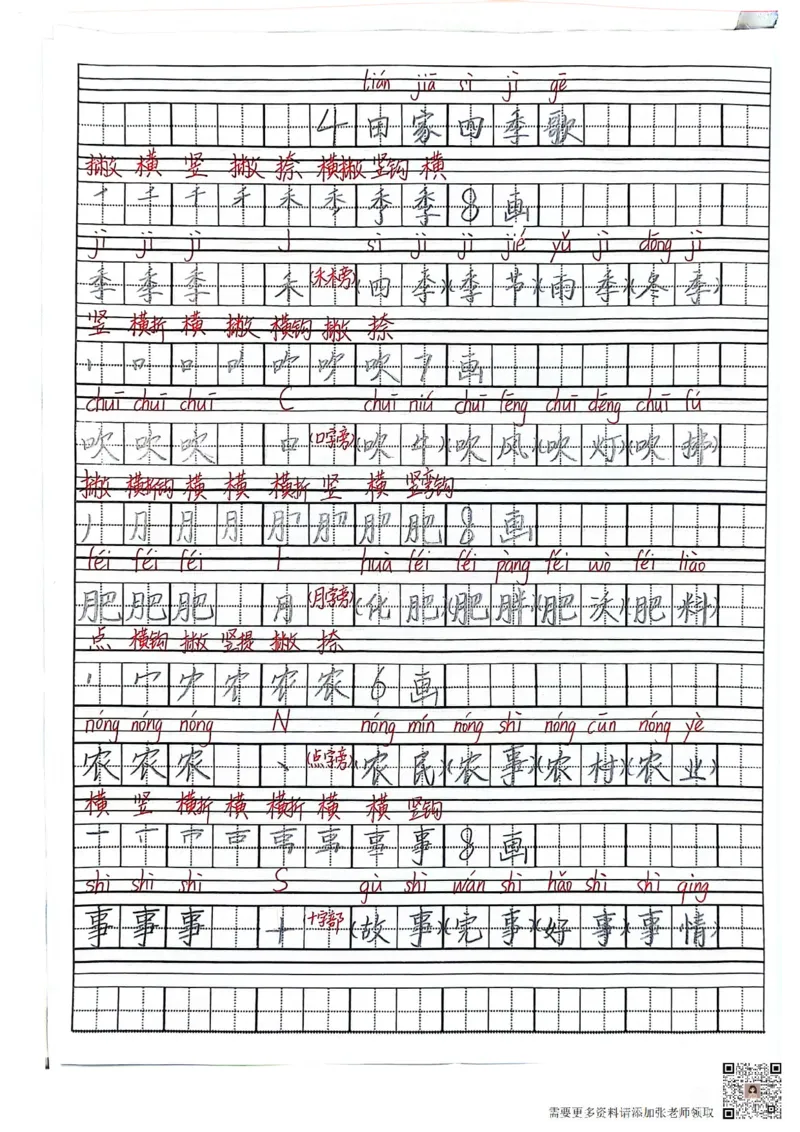 tián jiā sì jì gē
4 田家四季歌
撇 横 竖 撇 捺 横撇 竖钩 横
季 8 画
jì jì jì J sì jì jì jié yǔ jì dōng jì
季 季 季 禾 (禾木旁) (四季) (季节) (雨季) (冬季)
竖 横折 横 撇 横钩 撇 捺
吹 7 画
chuī chuī chuī C chuī niú chuī fēng chuī dēng chuī fú
吹 吹 吹 口 (口字旁) (吹牛) (吹风) (吹灯) (吹拂)
撇 横折钩 横 横 横折 竖 横 竖弯钩
丿 月 月 月 肥 8 画
féi féi féi huà féi féi pàng féi wò féi liào
肥 肥 肥 月 (月字旁) (化肥) (肥胖) (肥沃) (肥料)
点 横钩 撇 竖提 撇 捺
丶 冖 农 农 6 画
nóng nóng nóng N nóng mín nóng shì nóng cūn nóng yè
农 农 农 丶 (点字旁) (农民) (农事) (农村) (农业)
横 竖 横折 横 横折 横 横 竖钩
一 事 8 画
shì shì shì S gù shì wán shì hǎo shì shì qíng
事 事 事 十 十字部 (故事) (完事) (好事) (事情)
需要更多资料请添加张老师领取